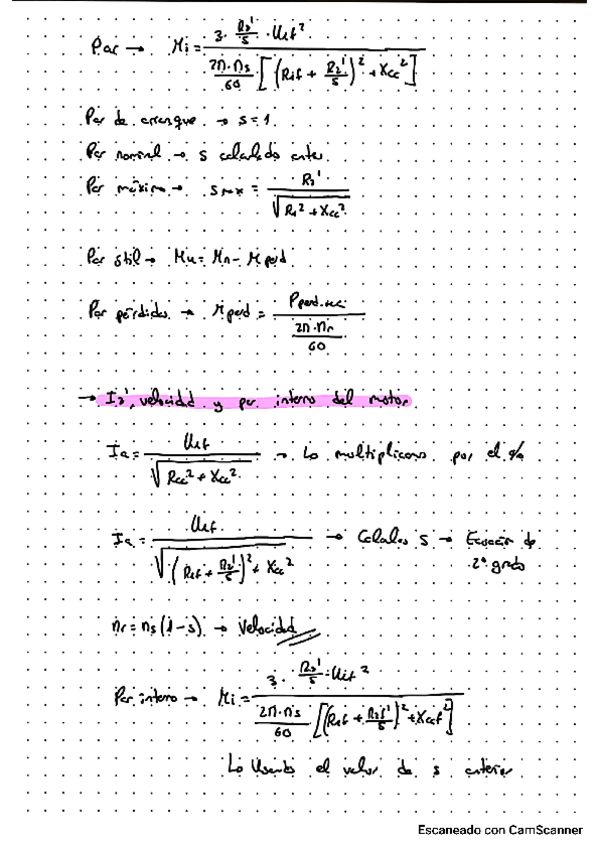 Par → Mi = 3 · R2'/s · U1f² / (2π·ns/60 [(R1f + R2'/s)² + Xcc²])
Par de arranque → s = 1.
Par nominal → s calculado antes
Par máximo → smax = R2' / √(R1² + Xcc²)
Par útil → Mu = Mn - Mperd
Par pérdidas → Mperd = Pperd.mec / (2π·nr/60)
→ I2', velocidad y par interno del motor.
Ia = U1f / √(Rcc² + Xcc²) → Lo multiplicamos por el %
Ia = U1f / √((R1f + R2'/s)² + Xcc²) → Calculas s → Ecuación de
2º grado
nr = ns(1-s) → Velocidad
Par interno → Mi = 3 · R2'/s · U1f² / (2π·ns/60 [(R1f + R2f'/s)² + Xccf²])
Lo Usando el valor de s anterior
Escaneado con CamScanner